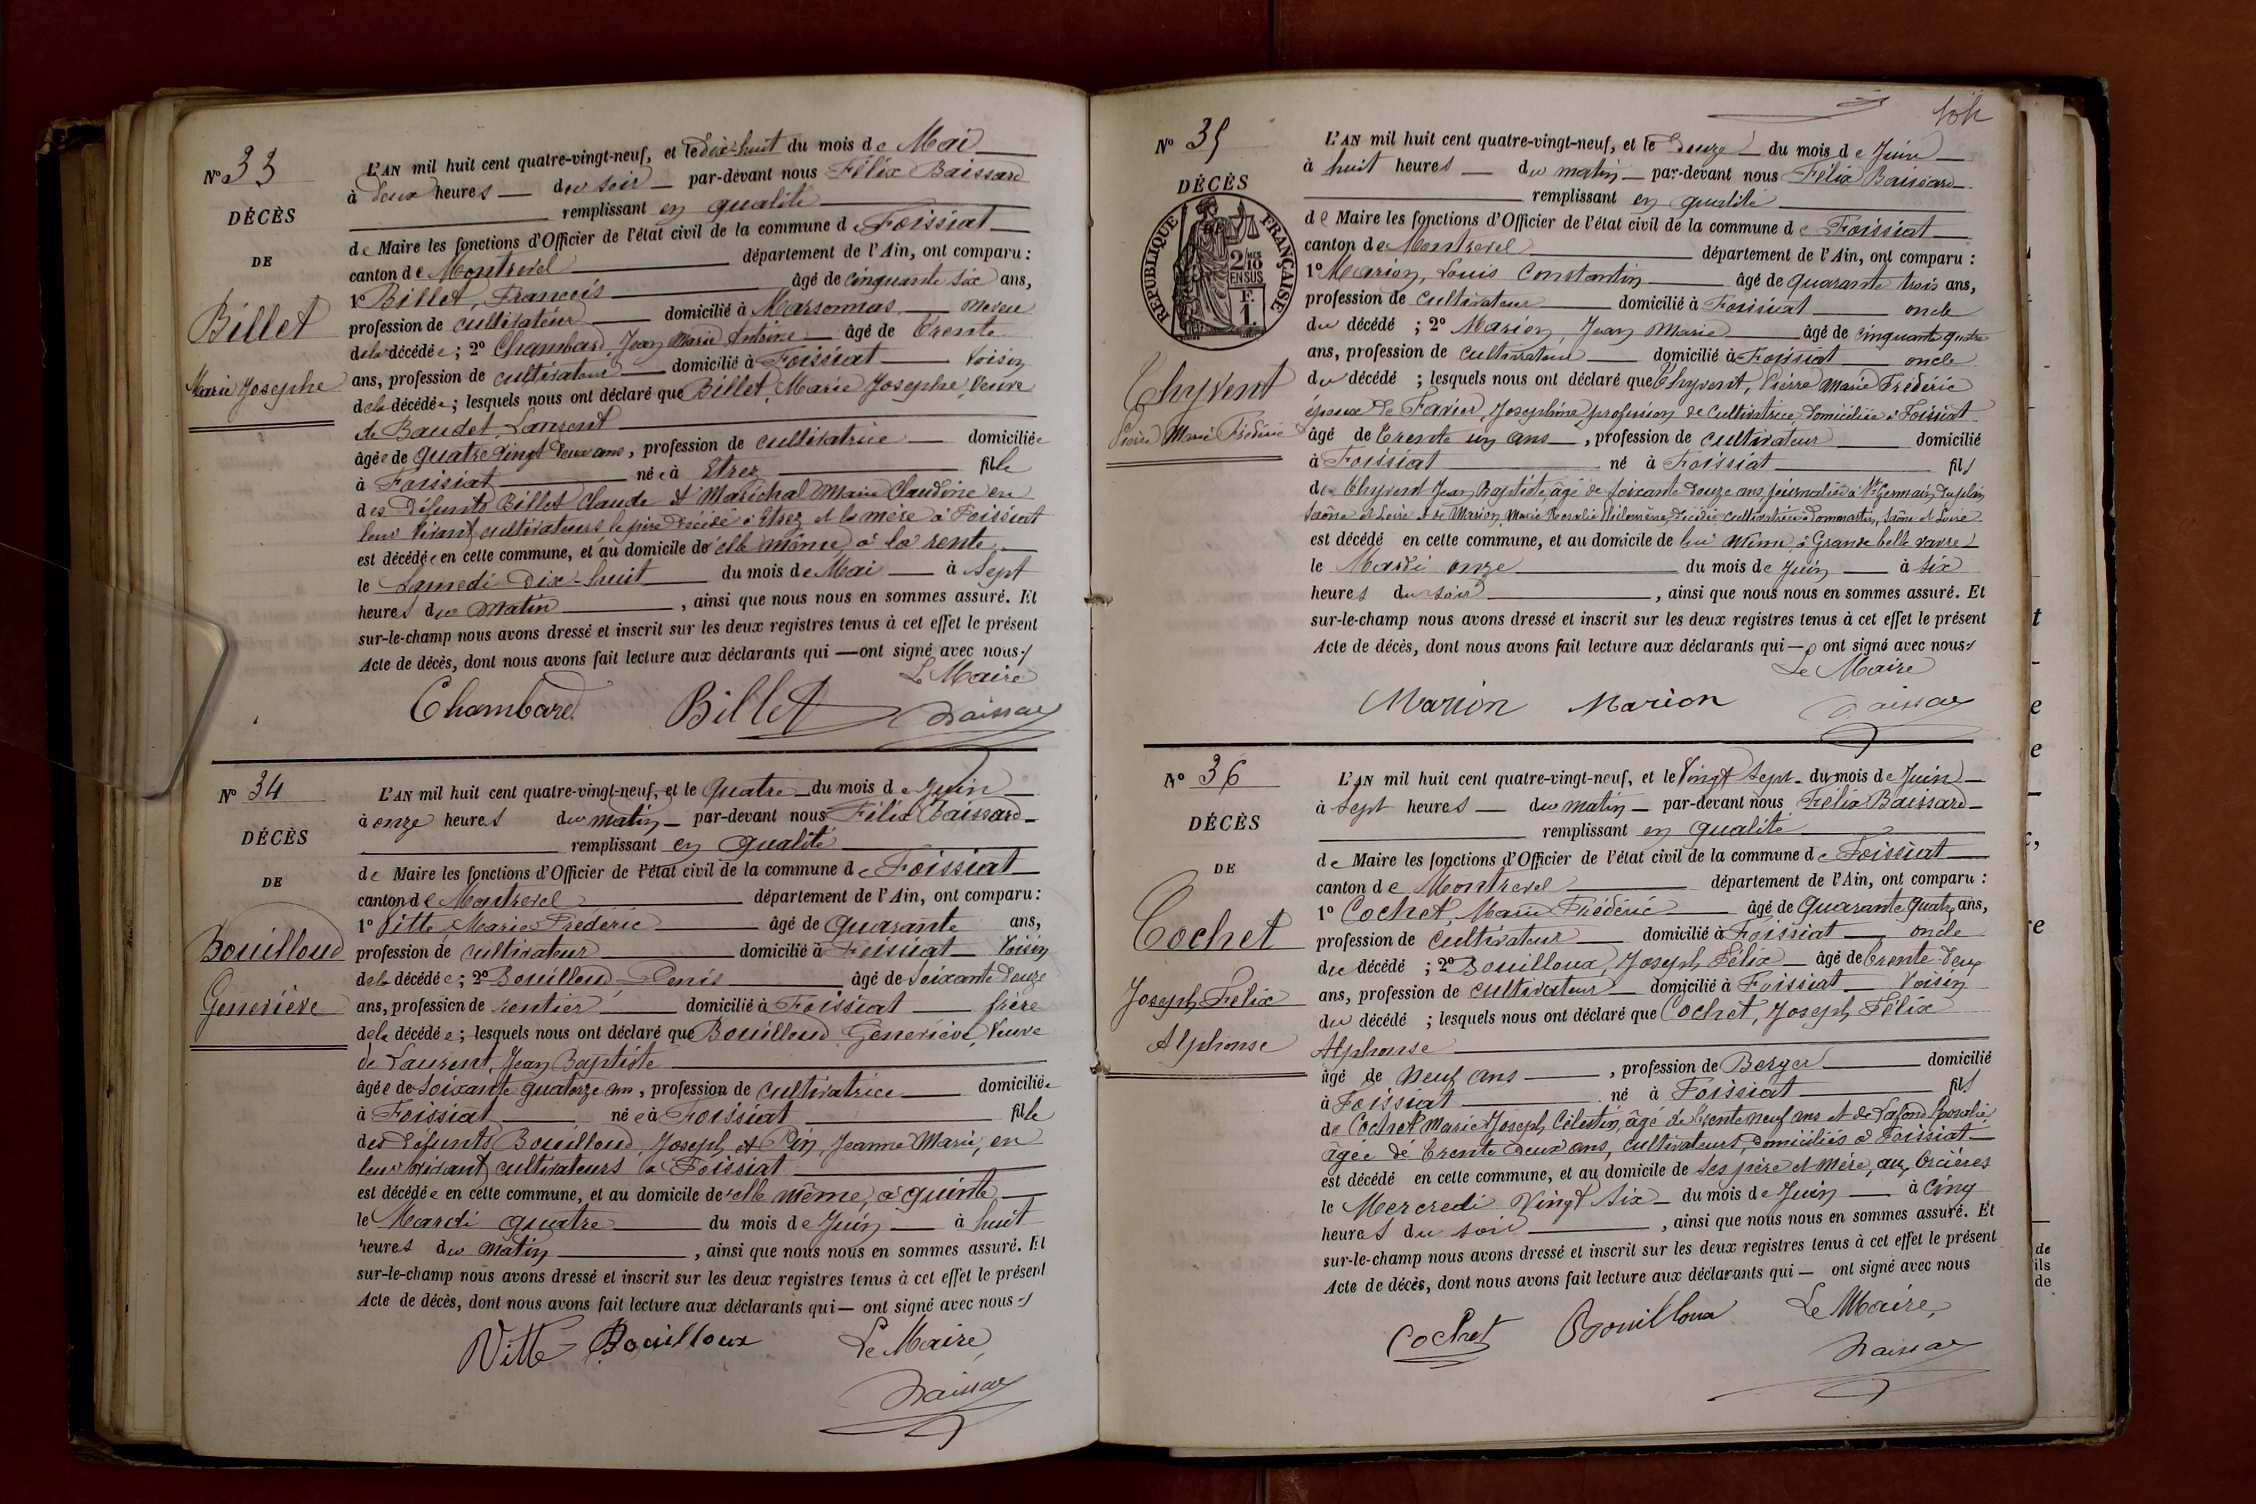 N° 33
DÉCÈS
DE
Billet
Marie Josephe
L'AN mil huit cent quatre-vingt-neuf, et le dix-huit du mois de Mai
à deux heures du soir par-devant nous Félix Baissard
remplissant en qualité
de Maire les fonctions d'Officier de l'état civil de la commune de Foissiat
canton de Montrevel département de l'Ain, ont comparu :
1° Billet, François âgé de cinquante six ans,
profession de cultivateur domicilié à Marsonnas neveu
de la décédée ; 2° Chambard, Jean Marie Antoine âgé de trente
ans, profession de cultivateur domicilié à Foissiat voisin
de la décédée ; lesquels nous ont déclaré que Billet, Marie Josephe, veuve
de Baudet, Laurent
âgée de quatre vingt deux ans, profession de cultivatrice domiciliée
à Foissiat née à Etrez fille
des défunts Billet Claude et Maréchal Marie Claudine en
leur vivant cultivateurs le père décédé à Etrez et la mère à Foissiat
est décédée en cette commune, et au domicile de elle même à la rente
le Samedi dix-huit du mois de Mai à sept
heures du matin, ainsi que nous nous en sommes assuré. Et
sur-le-champ nous avons dressé et inscrit sur les deux registres tenus à cet effet le présent
Acte de décès, dont nous avons fait lecture aux déclarants qui ont signé avec nous
Le Maire
Chambard Billet Baissard
N° 34
DÉCÈS
DE
Bouilloud
Geneviève
L'AN mil huit cent quatre-vingt-neuf, et le quatre du mois de Juin
à onze heures du matin par-devant nous Félix Baissard
remplissant en qualité
de Maire les fonctions d'Officier de l'état civil de la commune de Foissiat
canton de Montrevel département de l'Ain, ont comparu :
1° Vitte, Marie Frédéric âgé de quarante ans,
profession de cultivateur domicilié à Foissiat voisin
de la décédée ; 2° Bouilloud, Denis âgé de soixante douze
ans, profession de rentier domicilié à Foissiat frère
de la décédée ; lesquels nous ont déclaré que Bouilloud Geneviève, veuve
de Laurent, Jean Baptiste
âgée de soixante quatorze ans, profession de cultivatrice domiciliée
à Foissiat née à Foissiat fille
des défunts Bouilloud, Joseph et Pin, Jeanne Marie, en
leur vivant cultivateurs à Foissiat
est décédée en cette commune, et au domicile de elle même, à quinte
le Mardi quatre du mois de Juin à huit
heures du matin, ainsi que nous nous en sommes assuré. Et
sur-le-champ nous avons dressé et inscrit sur les deux registres tenus à cet effet le présent
Acte de décès, dont nous avons fait lecture aux déclarants qui ont signé avec nous
Vitte Bouilloux Le Maire,
Baissard
N° 35
DÉCÈS
RÉPUBLIQUE FRANÇAISE
2/10 EN SUS
F. 1.
Thyvent
Pierre Marie Frédéric
L'AN mil huit cent quatre-vingt-neuf, et le douze du mois de Juin
à huit heures du matin par-devant nous Félix Baissard
remplissant en qualité
de Maire les fonctions d'Officier de l'état civil de la commune de Foissiat
canton de Montrevel département de l'Ain, ont comparu :
1° Marion, Louis Constantin âgé de quarante trois ans,
profession de cultivateur domicilié à Foissiat oncle
du décédé ; 2° Marion, Jean Marie âgé de cinquante quatre
ans, profession de cultivateur domicilié à Foissiat oncle
du décédé ; lesquels nous ont déclaré que Thyvent, Pierre Marie Frédéric
époux de Favier, Joséphine profession de cultivatrice, domiciliée à Foissiat
âgé de trente un ans, profession de cultivateur domicilié
à Foissiat né à Foissiat fils
de Thyvent Jean Baptiste, âgé de soixante douze ans, journalier à St Germain du plain
Saône et Loire et de Marion, Marie Rosalie Philomène, décédée cultivatrice à Dommartin, Saône et Loire
est décédé en cette commune, et au domicile de lui même, à Grande belle vavre
le Mardi onze du mois de Juin à six
heures du soir, ainsi que nous nous en sommes assuré. Et
sur-le-champ nous avons dressé et inscrit sur les deux registres tenus à cet effet le présent
Acte de décès, dont nous avons fait lecture aux déclarants qui ont signé avec nous
Le Maire
Marion Marion Baissard
N° 36
DÉCÈS
DE
Cochet
Joseph Félix
Alphonse
L'AN mil huit cent quatre-vingt-neuf, et le vingt sept du mois de Juin
à sept heures du matin par-devant nous Félix Baissard
remplissant en qualité
de Maire les fonctions d'Officier de l'état civil de la commune de Foissiat
canton de Montrevel département de l'Ain, ont comparu :
1° Cochet, Marie Frédéric âgé de quarante quatre ans,
profession de cultivateur domicilié à Foissiat oncle
du décédé ; 2° Bouilloux, Joseph Félix âgé de trente deux
ans, profession de cultivateur domicilié à Foissiat voisin
du décédé ; lesquels nous ont déclaré que Cochet, Joseph Félix
Alphonse
âgé de neuf ans, profession de Berger domicilié
à Foissiat né à Foissiat fils
de Cochet Marie Joseph Célestin, âgé de trente neuf ans et de Lafond Rosalie
âgée de trente deux ans, cultivateurs, domiciliés à Foissiat
est décédé en cette commune, et au domicile de ses père et mère, aux Orcières
le Mercredi vingt six du mois de Juin à cinq
heures du soir, ainsi que nous nous en sommes assuré. Et
sur-le-champ nous avons dressé et inscrit sur les deux registres tenus à cet effet le présent
Acte de décès, dont nous avons fait lecture aux déclarants qui ont signé avec nous
Cochet Bouilloux Le Maire,
Baissard